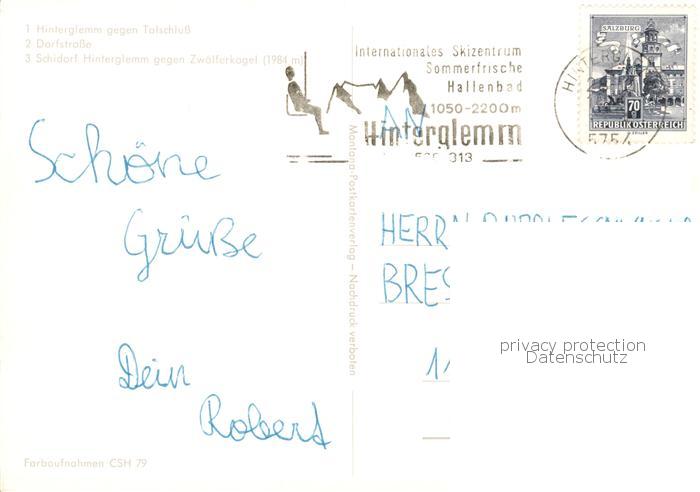 1 Hinterglemm gegen Talschluß
2 Dorfstraße
3 Schidorf Hinterglemm gegen Zwölferkogel (1984 m)
Schöne
Grüße
Dein
Robert
Farbaufnahmen CSH 79
Montana-Postkartenverlag – Nachdruck verboten
Internationales Skizentrum
Sommerfrische
Hallenbad
1050-2200m
Hinterglemm
313
SALZBURG
70
REPUBLIK ÖSTERREICH
5754
AN
HERRN
BRES
privacy protection
Datenschutz